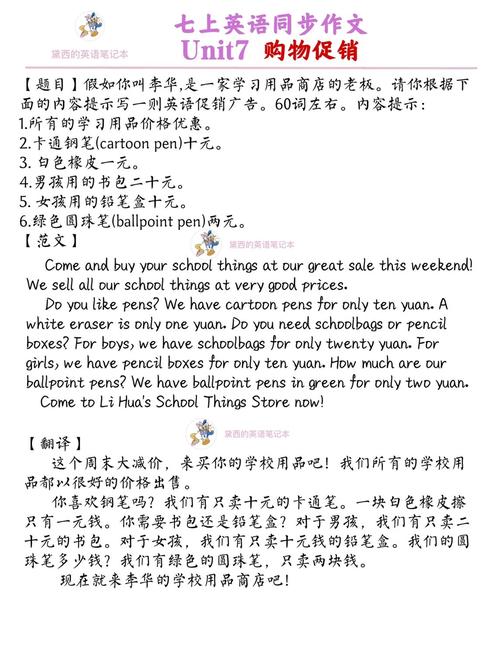 七上英语同步作文
黛西的英语笔记本
Unit7 购物促销
【题目】假如你叫李华,是一家学习用品商店的老板。请你根据下
面的内容提示写一则英语促销广告。60词左右。内容提示:
1.所有的学习用品价格优惠。
2.卡通钢笔(cartoon pen)十元。
3. 白色橡皮一元。
4.男孩用的书包二十元。
5. 女孩用的铅笔盒十元。
6.绿色圆珠笔(ballpoint pen)两元。
【范文】
黛西的英语笔记本
Come and buy your school things at our great sale this weekend!
We sell all our school things at very good prices.
Do you like pens? We have cartoon pens for only ten yuan. A
white eraser is only one yuan. Do you need schoolbags or pencil
boxes? For boys, we have schoolbags for only twenty yuan. For
girls, we have pencil boxes for only ten yuan. How much are our
ballpoint pens? We have ballpoint pens in green for only two yuan.
Come to Li Hua's School Things Store now!
黛西的英语笔记本
【翻译】
这个周末大减价，来买你的学校用品吧！我们所有的学校用
品都以很好的价格出售。
你喜欢钢笔吗？我们有只卖十元的卡通笔。一块白色橡皮擦
只有一元钱。你需要书包还是铅笔盒？对于男孩，我们有只卖二
十元的书包。对于女孩，我们有只卖十元钱的铅笔盒。我们的圆
珠笔多少钱？我们有绿色的圆珠笔，只卖两块钱。
现在就来李华的学校用品商店吧！